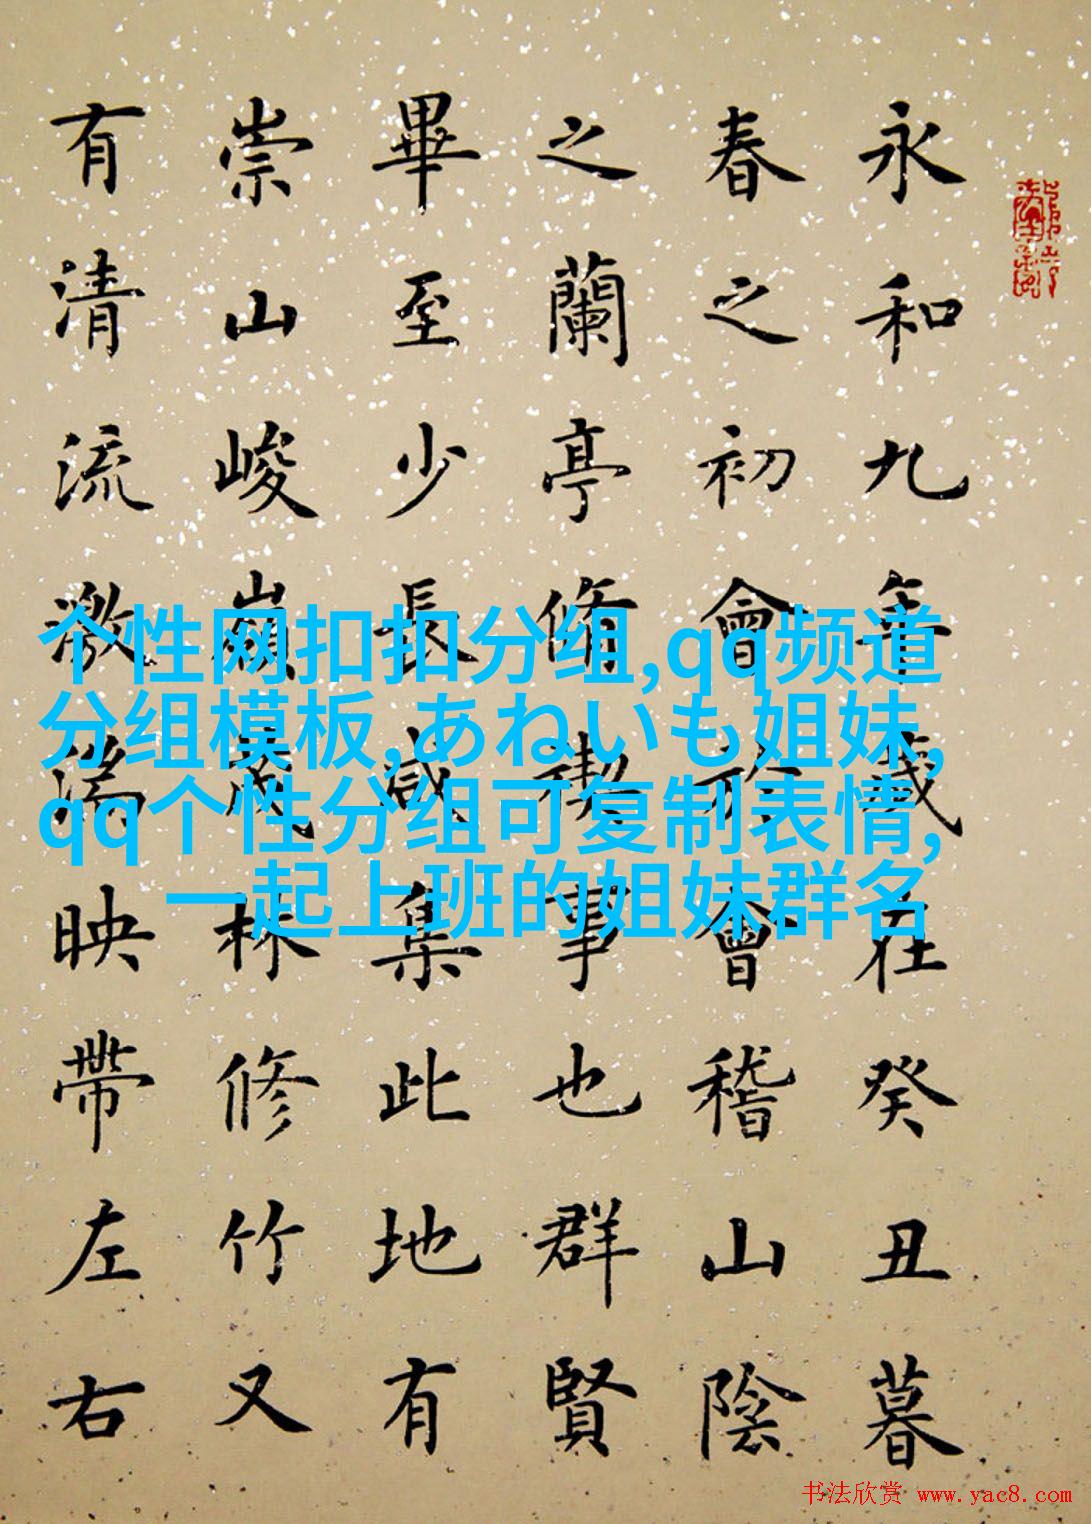 永和九年歲在癸丑暮
春之初會於會稽山陰
之蘭亭脩禊事也群賢
畢至少長咸集此地有
崇山峻嶺茂林修竹又
有清流激湍映帶左右
个性网扣扣分组,qq频道
分组模板,あねいも姐妹,
qq个性分组可复制表情,
一起上班的姐妹群名
书法欣赏 www.yac8.com